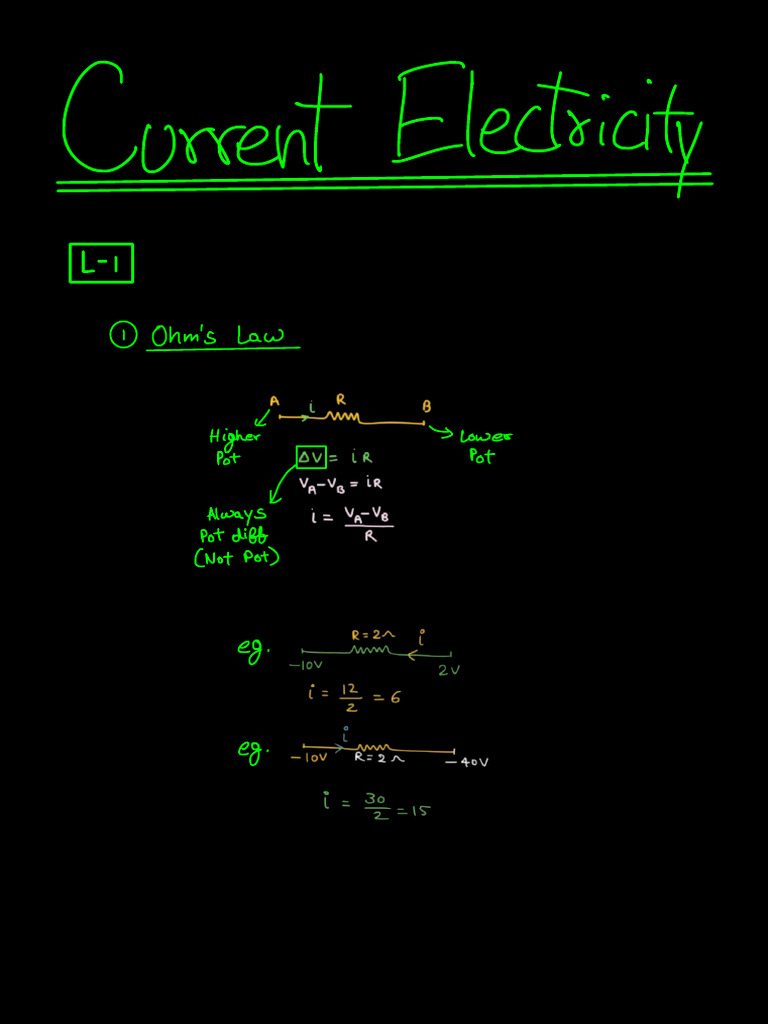 Current Electricity
L-1
① Ohm's Law
A i R B
Higher Pot
Lower Pot
ΔV = iR
V_A - V_B = iR
i = (V_A - V_B)/R
Always
Pot diff
(Not Pot)
eg.
R = 2Ω i
-10V 2V
i = 12/2 = 6
eg.
i
-10V R = 2Ω -40V
i = 30/2 = 15